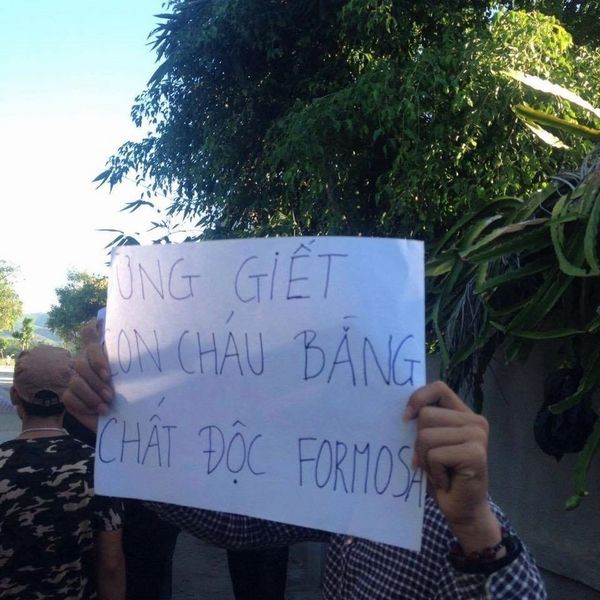 ĐỪNG GIẾT
CON CHÁU BẰNG
CHẤT ĐỘC FORMOSA